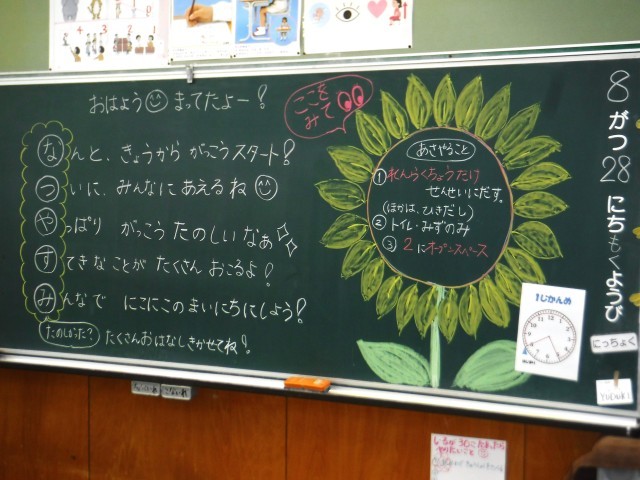 おはよう まってたよー!
なんと、きょうから がっこうスタート!
ついに、みんなに あえるね
やっぱり がっこう たのしいなぁ
すてきなことが たくさん おこるよ!
みんなで にこにこのまいにちにしよう!
たのしかった? たくさんおはなしきかせてね!
ここを
みて
あさやること
① れんらくちょうだけ
せんせいにだす。
(ほかは、ひきだし)
② トイレ・みずのみ
③ 2にオープンスペース
8がつ28にちもくようび
1じかんめ
にっちょく